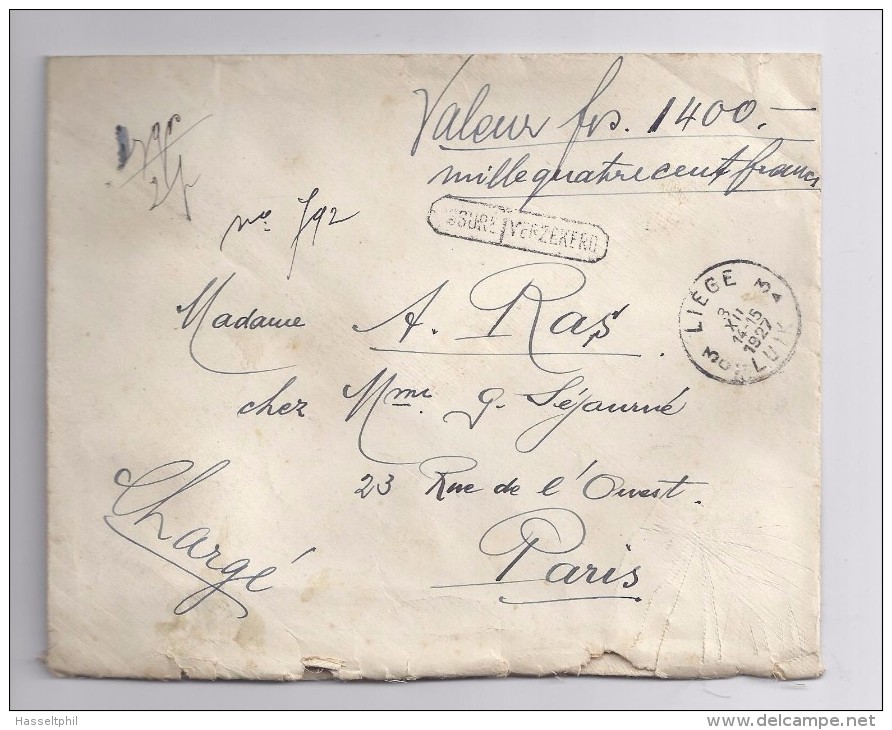 Valeur frs. 1400.—
mille quatre cent francs
no 792
ASSURÉ VERZEKERD
LIÈGE 3A
8
XII
14-15
1927
LUIK
Madame A. Ras.
chez Mme G. Séjourné
23 Rue de l'Ouest.
Paris
Chargé
Hasseltphil
www.delcampe.net